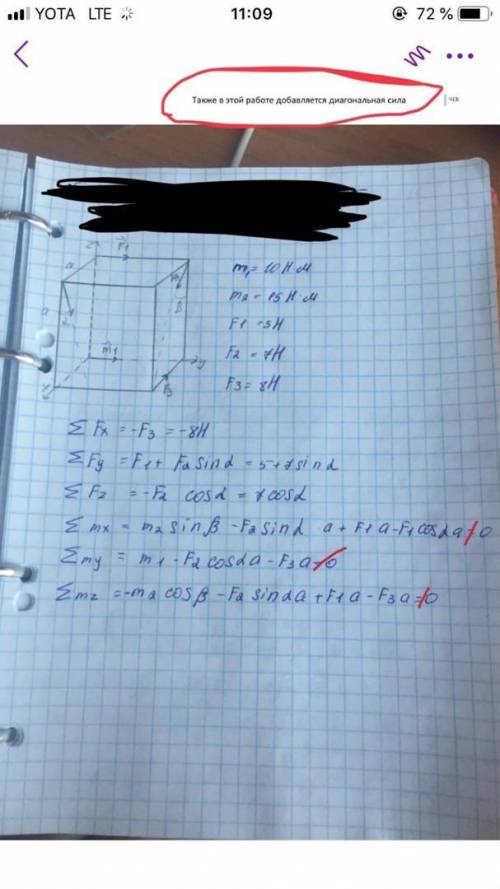 YOTA LTE 11:09 72 %
Также в этой работе добавляется диагональная сила
чев
z F1
a
m1 = 10 Н·м
m2 = 15 Н·м
a β
F1 = 5Н
m1 y
F2 = 7Н
x F3
F3 = 8Н
ΣFx = -F3 = -8Н
ΣFy = F1 + F2 sin α = 5 + 7 sin α
ΣFz = -F2 cos α = 7 cos α
Σmx = m2 sin β - F2 sin α a + F1 a - F1 cos α a = 0
Σmy = m1 - F2 cos α a - F3 a = 0
Σmz = -m2 cos β - F2 sin α a + F1 a - F3 a = 0